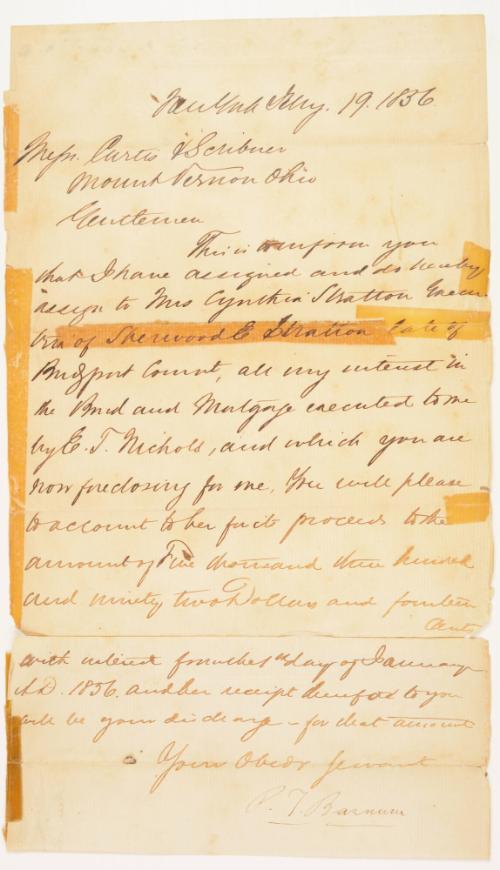 New York Feby. 19. 1856.
Messrs. Curtis & Scribner
Mount Vernon Ohio
Gentlemen
This is to inform you
that I have assigned and do hereby
assign to Mrs Cynthia Stratton Execu
trix of Sherwood E Stratton late of
Bridgport Connt, all my interest in
the Bond and Mortgage executed to me
by E. T. Nichols, and which you are
now foreclosing for me. You will please
to account to her for its proceeds to the
amount of Five thousand three hundred
and ninety two Dollars and fourteen
Cents
with interest from the 1st day of January
A.D. 1856. and her receipt therefor to you
will be your discharge for that amount
Your Obedt Servant
P. T. Barnum